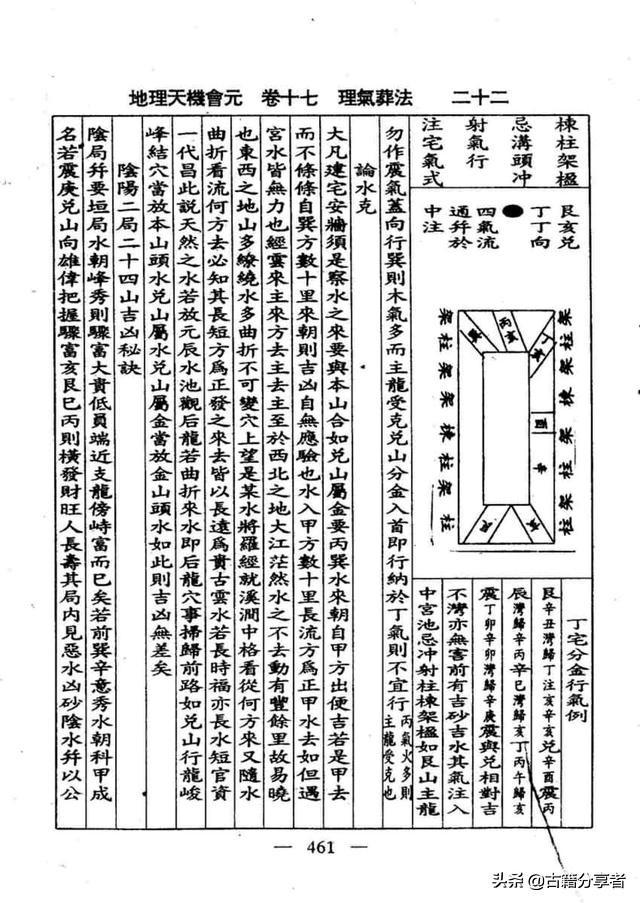 地理天機會元　卷十七　理氣葬法　二十二
棟柱架楹
忌溝頭冲
射氣行
注宅氣式
艮亥兌
丁丁向
四氣流
通幷於
中注
架柱架棟架柱架柱
丙亥
酉
辛
架柱架架棟柱架柱
丁宅分金行氣例
艮辛丑灣歸丁注亥辛亥兌辛酉震丙
辰灣歸辛丙辛巳灣歸亥丁丙午歸亥
震丁卯辛卯灣歸辛庚震與兌相對吉
不灣亦無害前有吉砂吉水其氣注入
中宮池忌冲射柱棟架楹如艮山主龍
勿作震氣蓋向行巽則木氣多而主龍受克兌山分金入首即行納於丁氣則不宜行丙氣火多則主龍受克也
論水克
大凡建宅安牆須是察水之來要與本山合如兌山屬金要丙巽水來朝自甲方出便吉若是甲去
而不條條自巽方數十里來朝則吉凶自無應驗也水入甲方數十里長流方爲正甲水去如但遇
宮水皆無力也經雲來主來方去主去主至於西北之地大江茫然水之不去動有豐餘里故易曉
也東西之地山多繚繞水多曲折不可變穴上望是某水將羅經就溪澗中格看從何方來又隨水
曲折看流何方去必知其長短方爲正發之來去皆以長遠爲貴古雲水若長時福亦長水短官資
一代昌此說天然之水若放元辰水池觀后龍若曲折來水即后龍穴事掃歸前路如兌山行龍峻
峰結穴當放本山頭水兌山屬水兌山屬金當放金山頭水如此則吉凶無差矣
陰陽二局二十四山吉凶秘訣
陰局幷要垣局水朝峰秀則驟富大貴低員端近支龍傍峙富而巳矣若前巽辛意秀水朝科甲成
名若震庚兌山向雄偉把握驟富亥艮巳丙則橫發財旺人長壽其局內見惡水凶砂陰水幷以公
— 461 —
头条 @古籍分享者